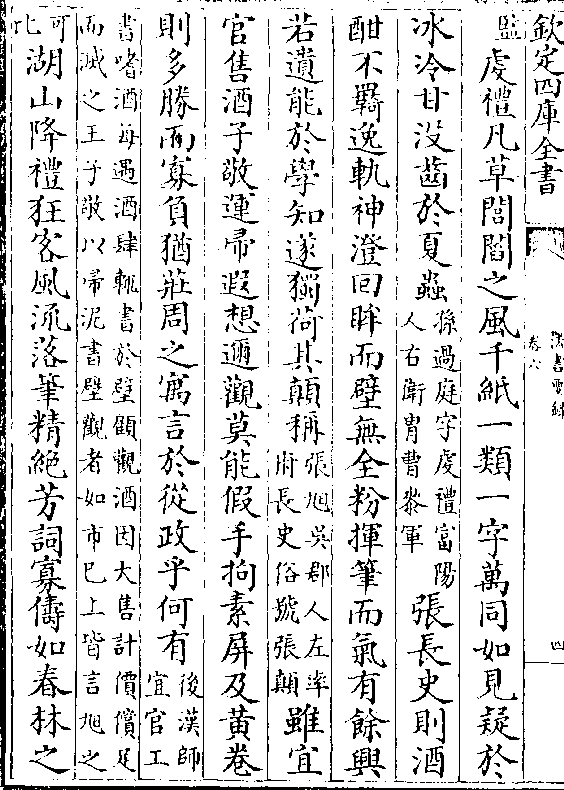 欽定四庫全書
法書要錄
卷六
四
監
虔禮凡草閭閻之風千紙一類一字萬同如見疑於
冰冷甘没齒於夏蟲孫過庭字虔禮富陽
人右衛冑曹叅軍張長史則酒
酣不羈逸軌神澄回眸而壁無全粉揮筆而氣有餘興
若遺能於學知遂獨荷其顛稱張旭吳郡人左率
府長史俗號張顛雖宜
官售酒子敬運帚遐想邇觀莫能假手拘素屏及黄卷
則多勝而寡負猶莊周之寓言於從政乎何有後漢師
宜官工
書嗜酒每遇酒肆輒書於壁顧觀酒因大售計價償足
而滅之王子敬以帚泥書壁觀者如市巳上皆言旭之
可
比
湖山降禮狂客風流落筆精絶芳詞寡儔如春林之